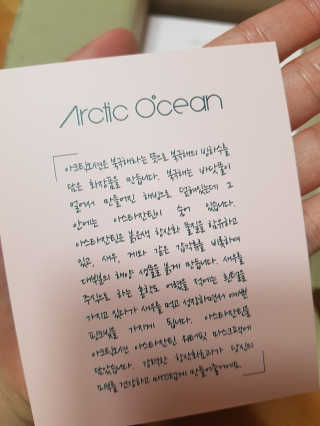 Arctic Ocean
아크틱오션은 북극해라는 뜻으로 북극해의 빙하수를
담은 화장품을 만듭니다. 북극해는 바닷물이
얼어서 만들어진 해빙으로 덮여있는데 그
안에는 아스타잔틴이 숨어 있습니다.
아스타잔틴은 붉은색 항산화 물질을 함유하고
있고, 새우, 게와 같은 갑각류를 비롯하여
대부분의 해양 생물을 붉게 만듭니다. 새우를
주식으로 하는 홍학도 어렸을 적에는 흰털을
가지고 있다가 새우를 먹고 성장하면서 예쁜
핑크빛을 가지게 됩니다. 아스타잔틴을
아크틱오션 아스타잔틴 마스크팩에
담았습니다. 강력한 항산화효과가 당신의
피부를 건강하고 매력있게 만들어줄거에요.